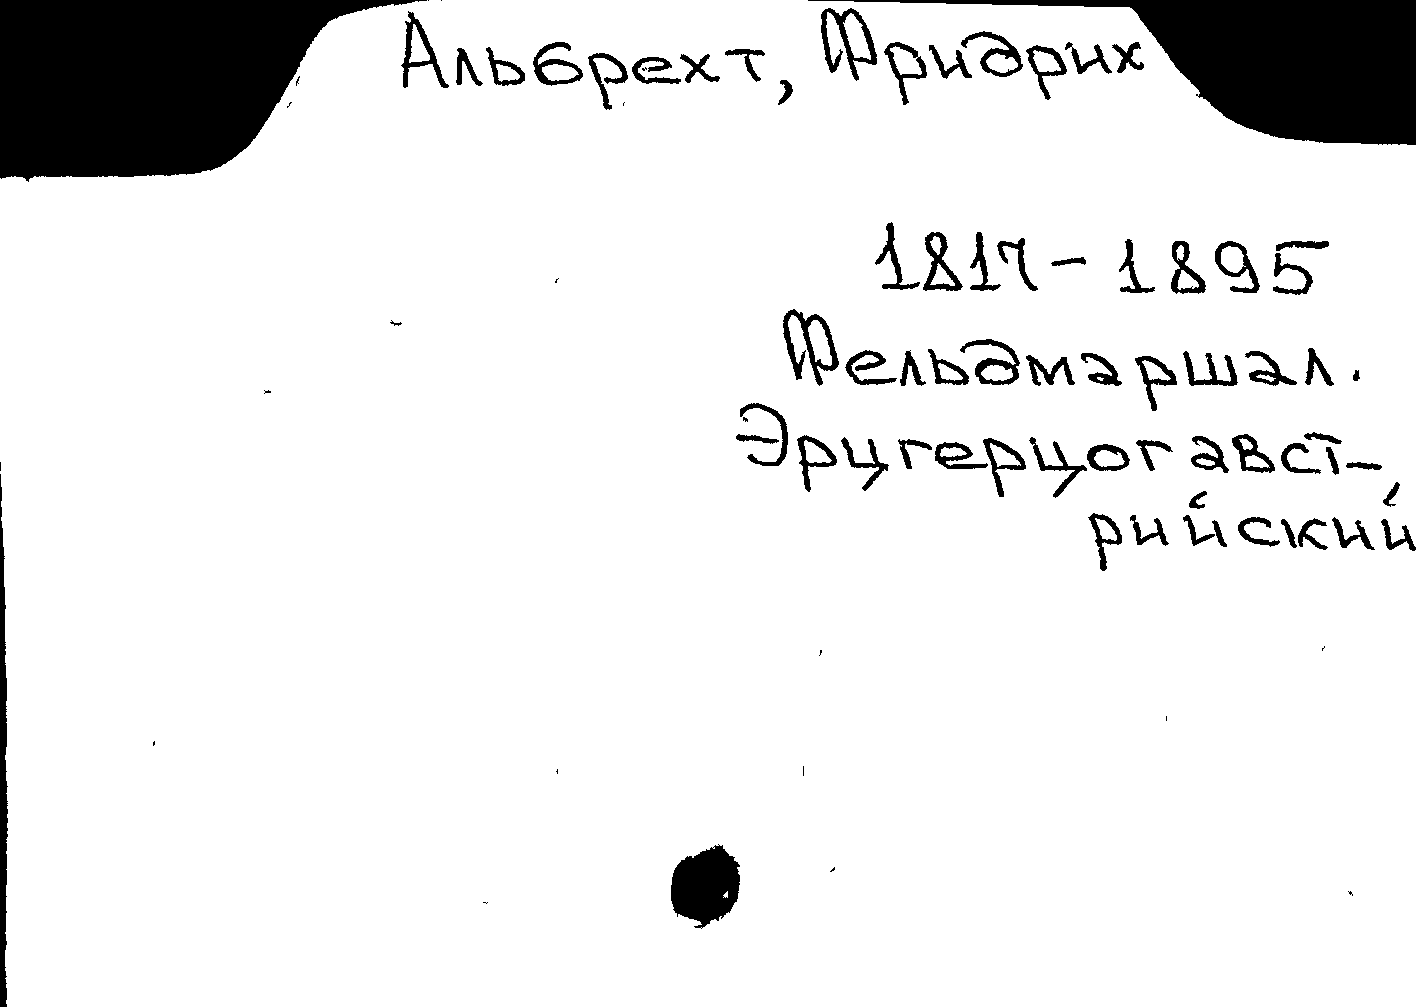 Альбрехт, Фридрих
1817-1895
Фельдмаршал.
Эрцгерцог авст-
рийский